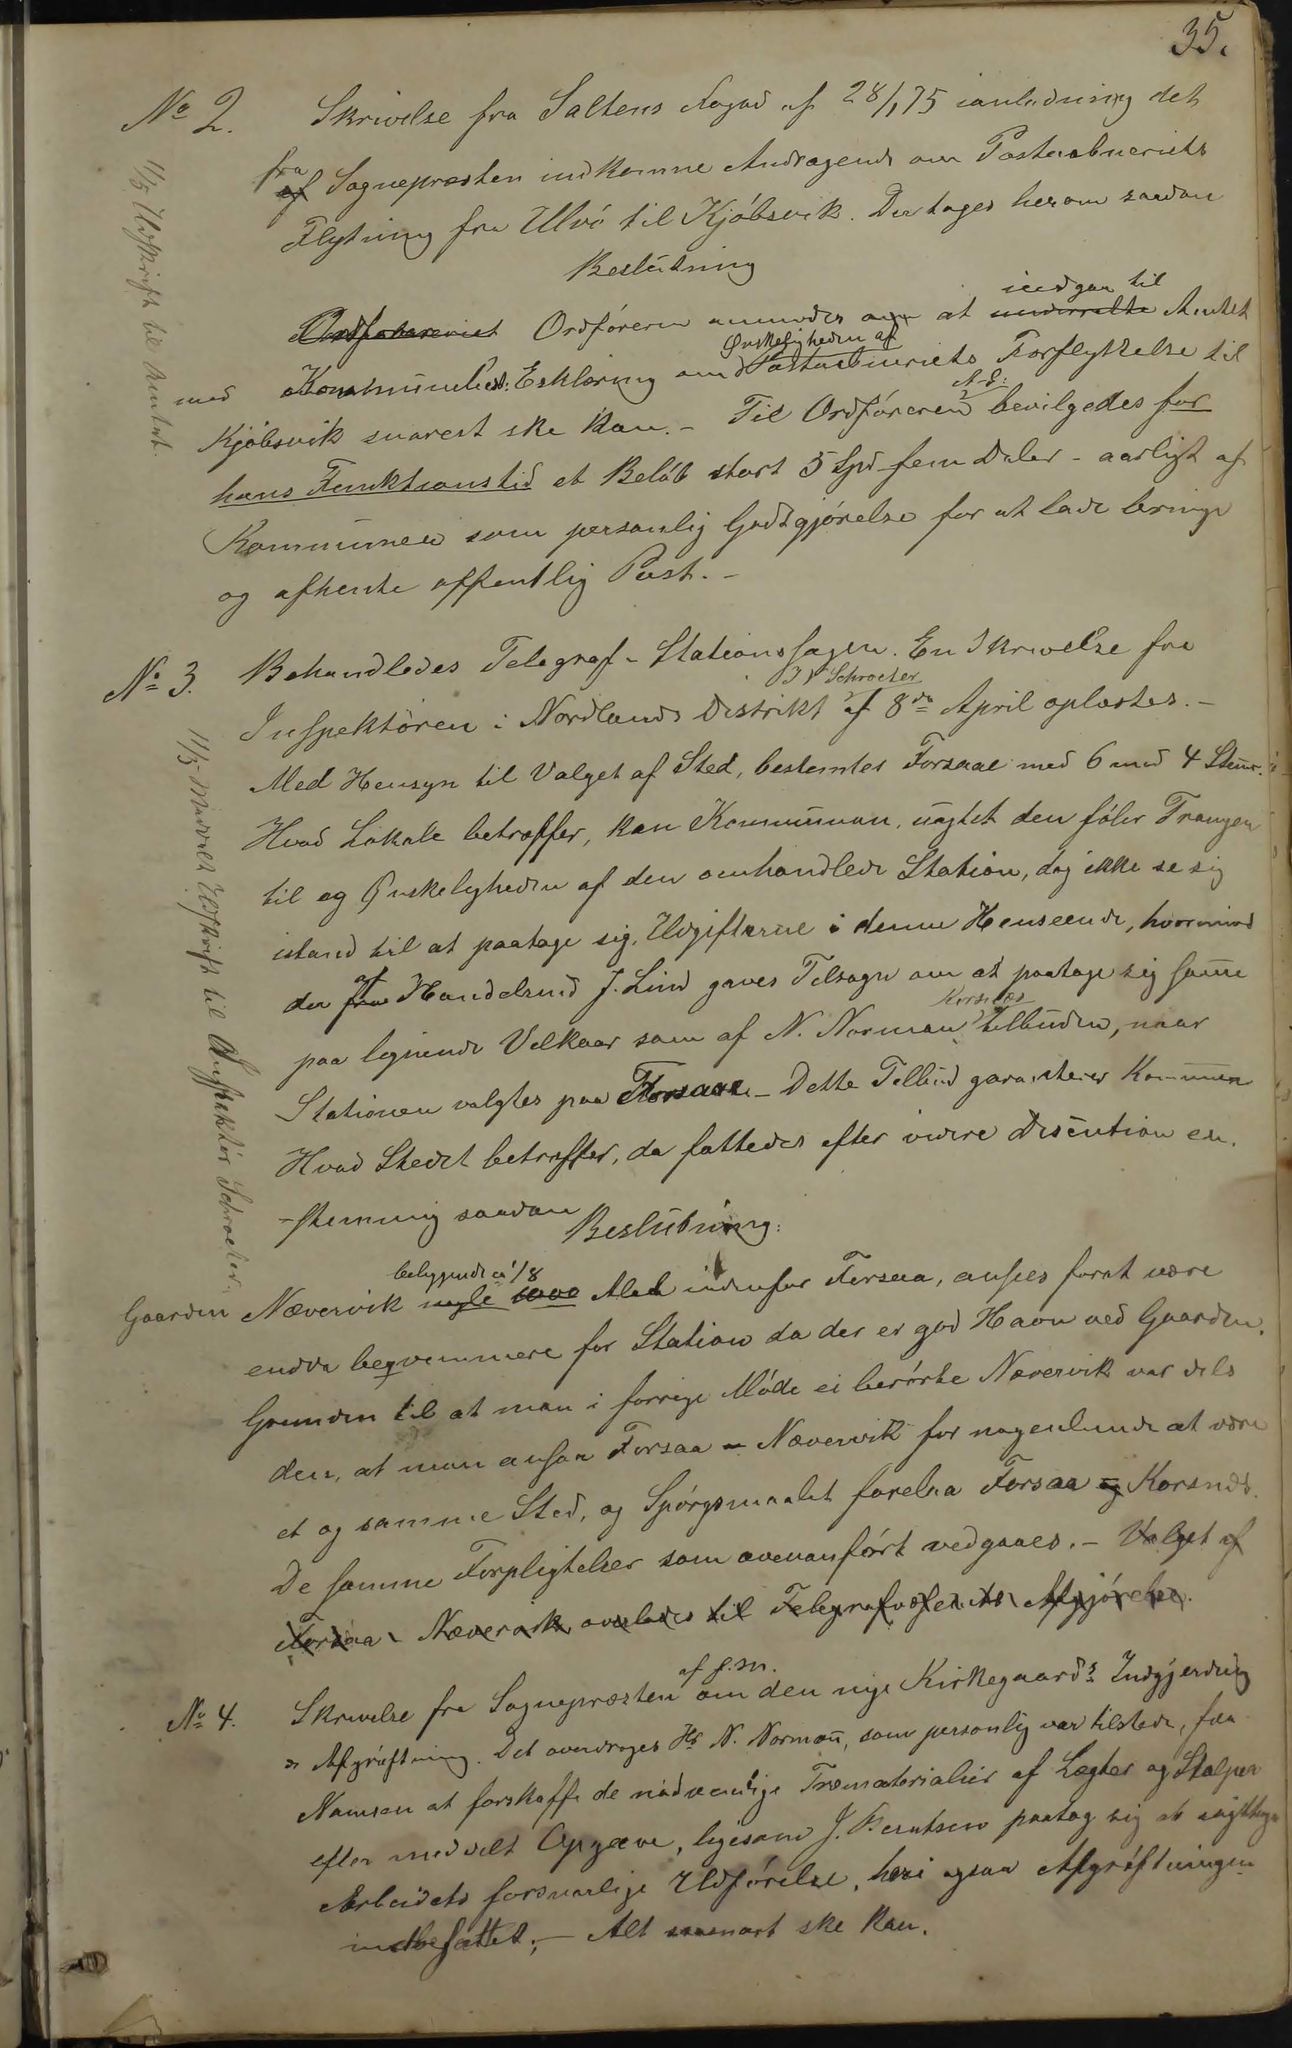 35.
No 2. Skrivelse fra Saltens Fogod af 28/1 75 ianledning det
fra
af Sognepræsten indkomne Andragende om Postaabneriets
Flytning fra Ulvö til Kjöbsvik. Der toges herom saadan
Beslutning
indgaa til
Ordföreren anmodes om at underrette Amtet
Ønskeligheden af
med Kommunebest: Erklæring om Postaabneriets Forflyttelse til
N. S:
Kjöbsvik snarest ske kan. - Til Ordföreren bevilgedes for
hans Funktionstid et Belöb stort 5 Spd fem Daler - aarligt af
Kommunen som personlig Godtgjörelse for at lade bringe
og afhente offentlig Post. -
1/5 Udskrift til Amtet.
No 3. Behandledes Telegraf-Stationssagen. En Skrivelse fra
Schroeter
Inspektören i Nordlands Distrikt af 8de April oplæstes. -
Med Hensyn til Valget af Sted, bestemtes Forsaae med 6 mod 4 Stemr.
Hvad Lokale betræffer, kan Kommunen, uagtet den föler Trangen
til og Ønskeligheden af den omhandlede Station, dog ikke se sig
istand til at paatage sig Udgifterne i denne Henseende, hvorimod
af
der fra Handelsmd J. Lind gaves Tilsagn om at paatage sig samme
Korsnæs
paa lignende Velkaar som af N. Norman tilbuden, naar
Stationen valgtes paa Forsaae - Dette Tilbud garanterer Kommunen
Hvad Stedet betræffer, da fattedes efter videre Discution en.
-stemmig saadan
Beslutning:
11/5 Meddelt Udskrift til Inspektör Schroeter.
beliggende ca 1/8
Gaarden Nævervik 6000 Alen indenfor Forsaa, ansees forat være
endda beqvemmere for Station da der er god Havn ved Gaarden.
Grunden til at man i forrige Möde ei berörte Nævervik var dels
den, at man ansaa Forsaa - Nævervik for nogenlunde at være
et og samme Sted, og Spörgsmaalet forelaa Forsaa og Korsnæs.
De samme Forpligtelser som ovenanfört vedgaaes. - Valget af
Forsaa - Nævervik overlades til Telegrafvæsenets Afgjörelse.
af s. m.
No 4. Skrivelse fra Sognepræsten om den nye Kirkegaards Indgjerdning
& Afgröftning. Det overdroges Hr N. Normann, som personlig var tilstede, fra
Namsen at forskaffe de nödvendige Træmaterialier af Lægter og Stolper
efter meddelt Opgave, ligesom J. Berntsen paatog sig at iagttage
Arbeidets forsvarlige Udförelse, heri ogsaa Afgröftningen
indbefattet; - Alt snarest ske kan.